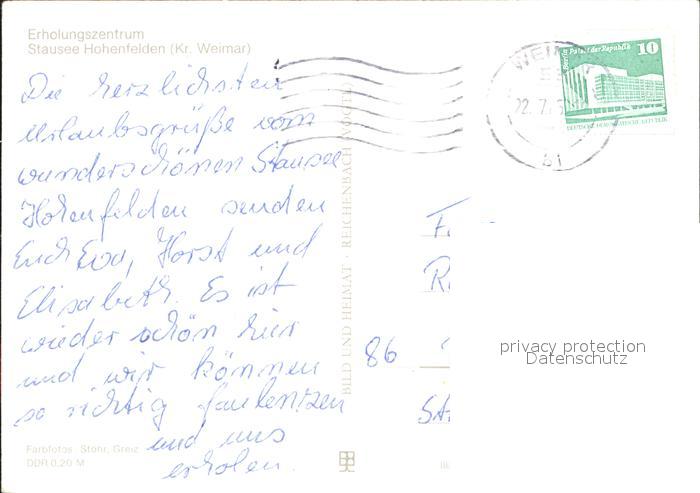 Erholungszentrum
Stausee Hohenfelden (Kr. Weimar)
Die herzlichsten
Urlaubsgrüße vom
wunderschönen Stausee
Hohenfelden senden
Euch Eva, Horst und
Elisabeth. Es ist
wieder schön hier
und wir können
so richtig faulenzen
und uns
erholen.
Farbfotos: Stöhr, Greiz
DDR 0,20 M
BILD UND HEIMAT · REICHENBACH (VOGTL)
WEIM
22.7.
bi
Berlin Palast der Republik 10
DEUTSCHE DEMOKRATISCHE REPUBLIK
F.
R
86
St
privacy protection
Datenschutz